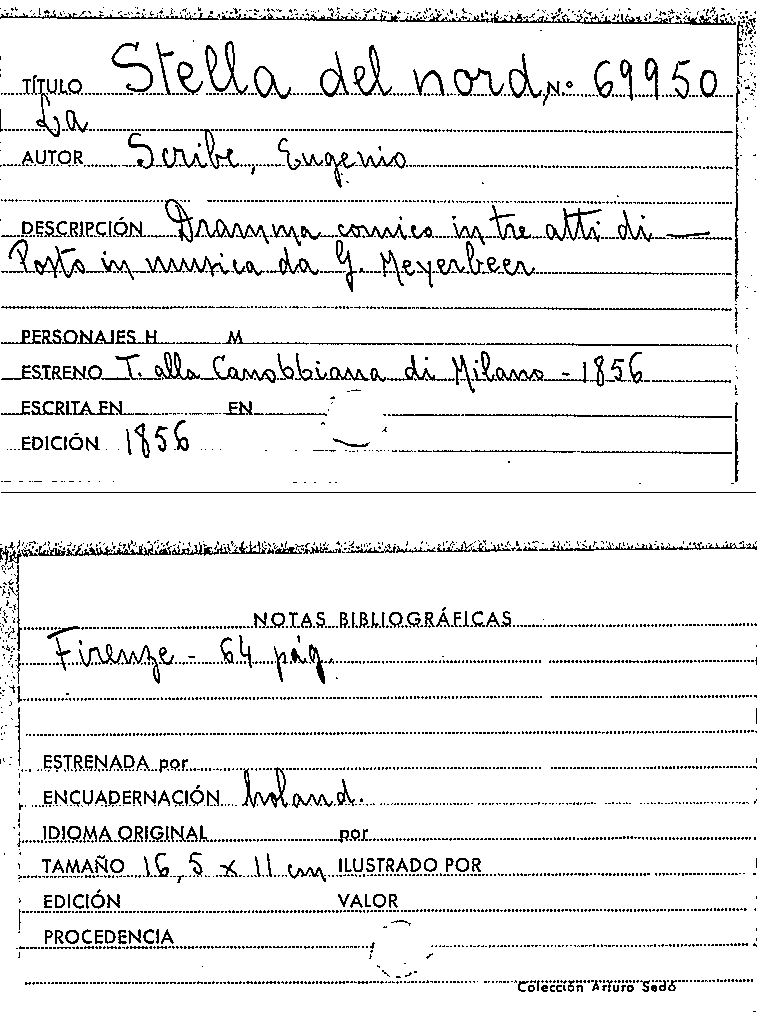 TÍTULO Stella del nord, N.º 69950
La
AUTOR Scribe, Eugenio
DESCRIPCIÓN Dramma comico in tre atti di —
Posto in musica da G. Meyerbeer
PERSONAJES H M
ESTRENO T. alla Canobbiana di Milano - 1856
ESCRITA EN EN
EDICIÓN 1856
NOTAS BIBLIOGRÁFICAS
Firenze - 64 pág.
ESTRENADA por
ENCUADERNACIÓN holand.
IDIOMA ORIGINAL por
TAMAÑO 16,5 x 11 cm ILUSTRADO POR
EDICIÓN VALOR
PROCEDENCIA
Colección Arturo Sedó